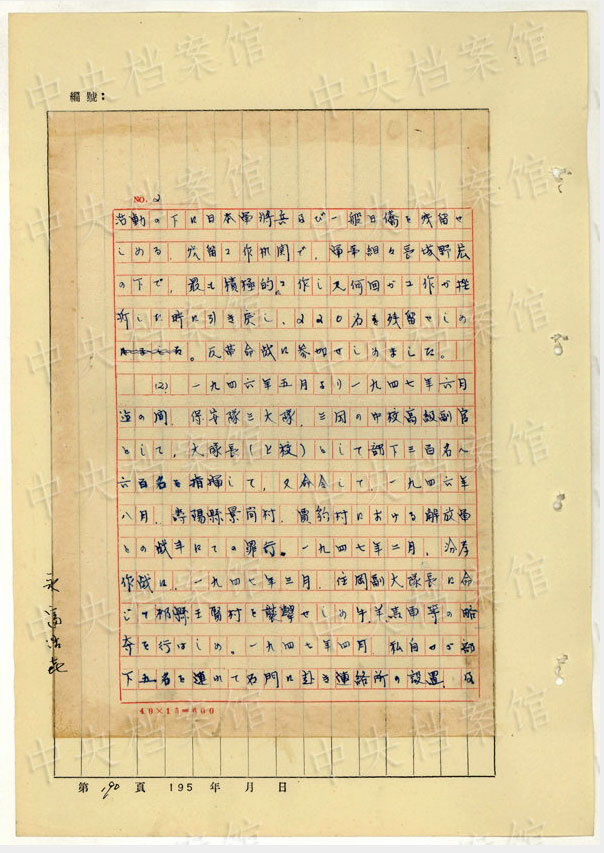 編號：
NO. 2
活動の下に日本軍将兵及び一般日僑を残留せ
しめる、残留工作机関で、軍事組々長城野宏
の下で、最も積極的に工作し
折した時に引き戻し、220名を残留せしめ
。反革命战に参加せしめました。
(2) 一九四六年五月より一九四七年六月
迄の間、保安隊三大隊、三团の中校高級副官
として、大隊長（上校）として部下三百名へ
六百名を指揮して、又命令して、一九四六年
八月、壽陽縣景尚村、賈豹村における解放軍
との战斗にての罪行。一九四七年二月、汾孝
作战に、一九四七年三月、住岡副大隊長に命
じて祁縣王賢村を襲撃せしめ牛羊馬車等の略
奪を行はしめ。一九四七年四月、私自ら部
下五名を連れて石門に赴き連絡所の設置、及
永富浩喜
40×15=600
第 190 頁 195 年 月 日
中央档案馆